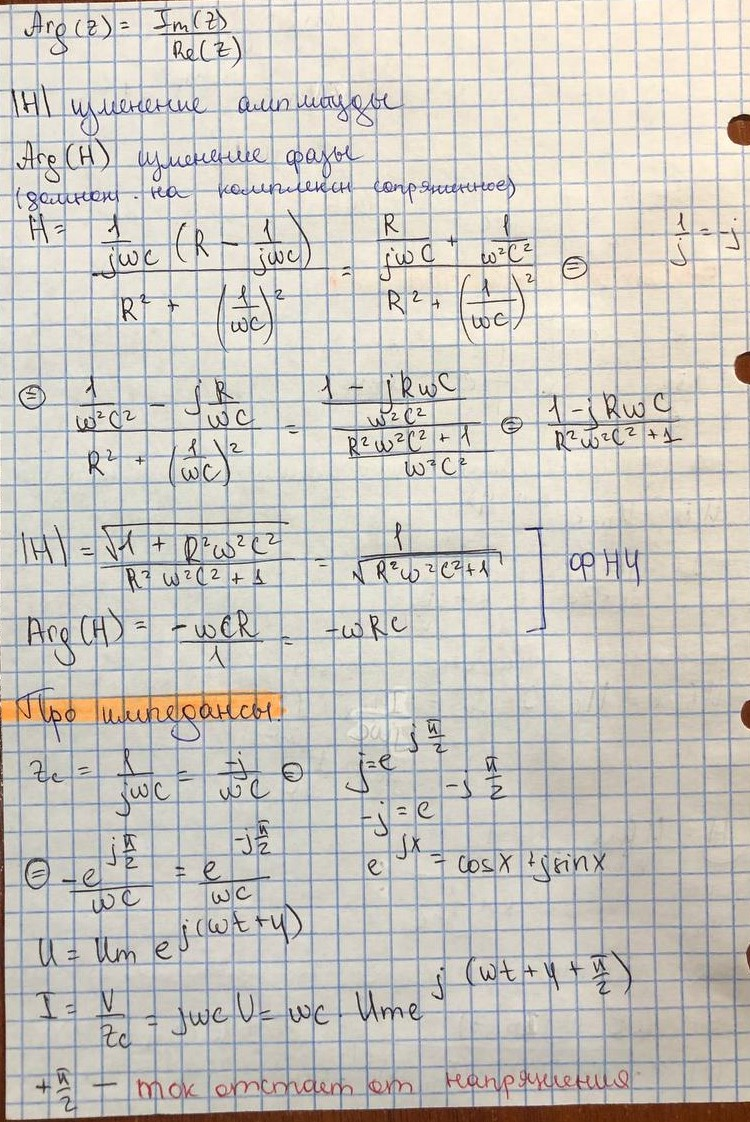 Arg(z) = Im(z)/Re(z)
|H| изменение амплитуды
Arg(H) изменение фазы
(домнож. на комплексн сопряженное)
H = (1/(jωC) (R − 1/(jωC)))/(R² + (1/(ωC))²) = (R/(jωC) + 1/(ω²C²))/(R² + (1/(ωC))²) ⊜ 1/j = -j
⊜ (1/(ω²C²) − j R/(ωC))/(R² + (1/(ωC))²) = ((1 − jRωC)/(ω²C²))/((R²ω²C² + 1)/(ω²C²)) ⊜ (1 − jRωC)/(R²ω²C² + 1)
|H| = √(1 + R²ω²C²)/(R²ω²C² + 1) = 1/√(R²ω²C²+1) ] ФНЧ
Arg(H) = −ωCR/1 = −ωRC
Про импедансы.
Zc = 1/(jωC) = −j/(ωC) ⊜ j = e^(jπ/2)
−j = e^(−jπ/2)
⊜ −e^(jπ/2)/(ωC) = e^(−jπ/2)/(ωC) e^(jx) = cosx + jsinx
U = Um e^(j(ωt+φ))
I = U/Zc = jωC U = ωC · Um e^(j(ωt + φ + π/2))
+π/2 — ток отстает от напряжения